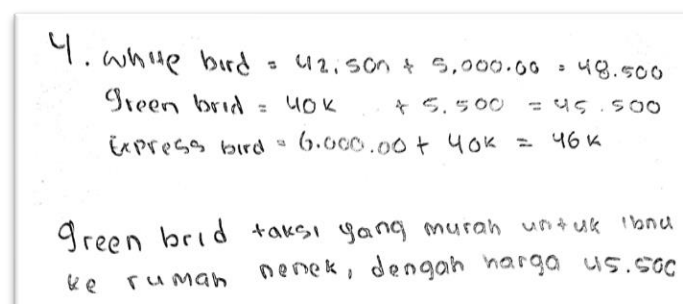 4. white bird = 42.500 + 5,000.00 = 48.500
green brid = 40k + 5.500 = 45.500
Express bird = 6.000.00 + 40k = 46k
green brid taksi yang murah untuk ibnu
ke rumah nenek, dengah harga 45.500